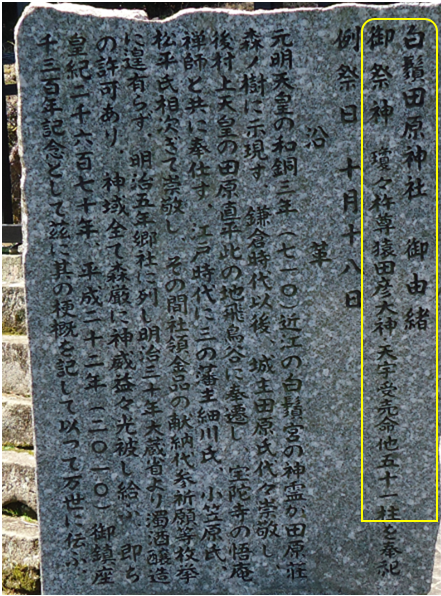 白鬚田原神社 御由緒
御祭神 瓊々杵尊猿田彦大神 天宇受売命他五十一柱を奉祀
例祭日 十月十八日
沿革
元明天皇の和銅三年(七一〇)近江の白鬚宮の神霊が田原荘
森ノ樹に示現す、鎌倉時代以後、城主田原氏代々崇敬し
後村上天皇の田原直平此の地飛鳥谷に奉遷し、宝陀寺の悟庵
禅師と共に奉仕す、江戸時代に三の藩主細川氏、小笠原氏、
松平氏相次ぎて崇敬し、その間社領金品の献納代参祈願等枚挙
に遑有らず、明治五年郷社に列し明治三十年大蔵省より濁酒醸造
の許可あり、神域全て森厳に神威益々光被し給ふ、即ち
皇紀二千六百七十年、平成二十二年(二〇一〇)御鎮座
千三百年記念として茲に其の梗概を記して以って万世に伝ふ